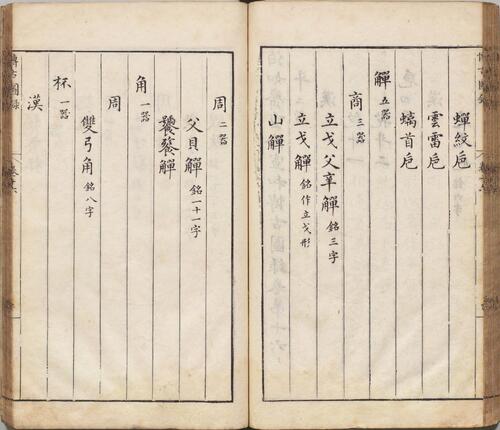 蟬紋卮
雲雷卮
螭首卮
觶五器
商三器
立戈父辛觶銘三字
立戈觶銘作立戈形
山觶
周二器
父貝觶銘一十一字
饕餮觶
角一器
周
雙弓角銘八字
杯一器
漢